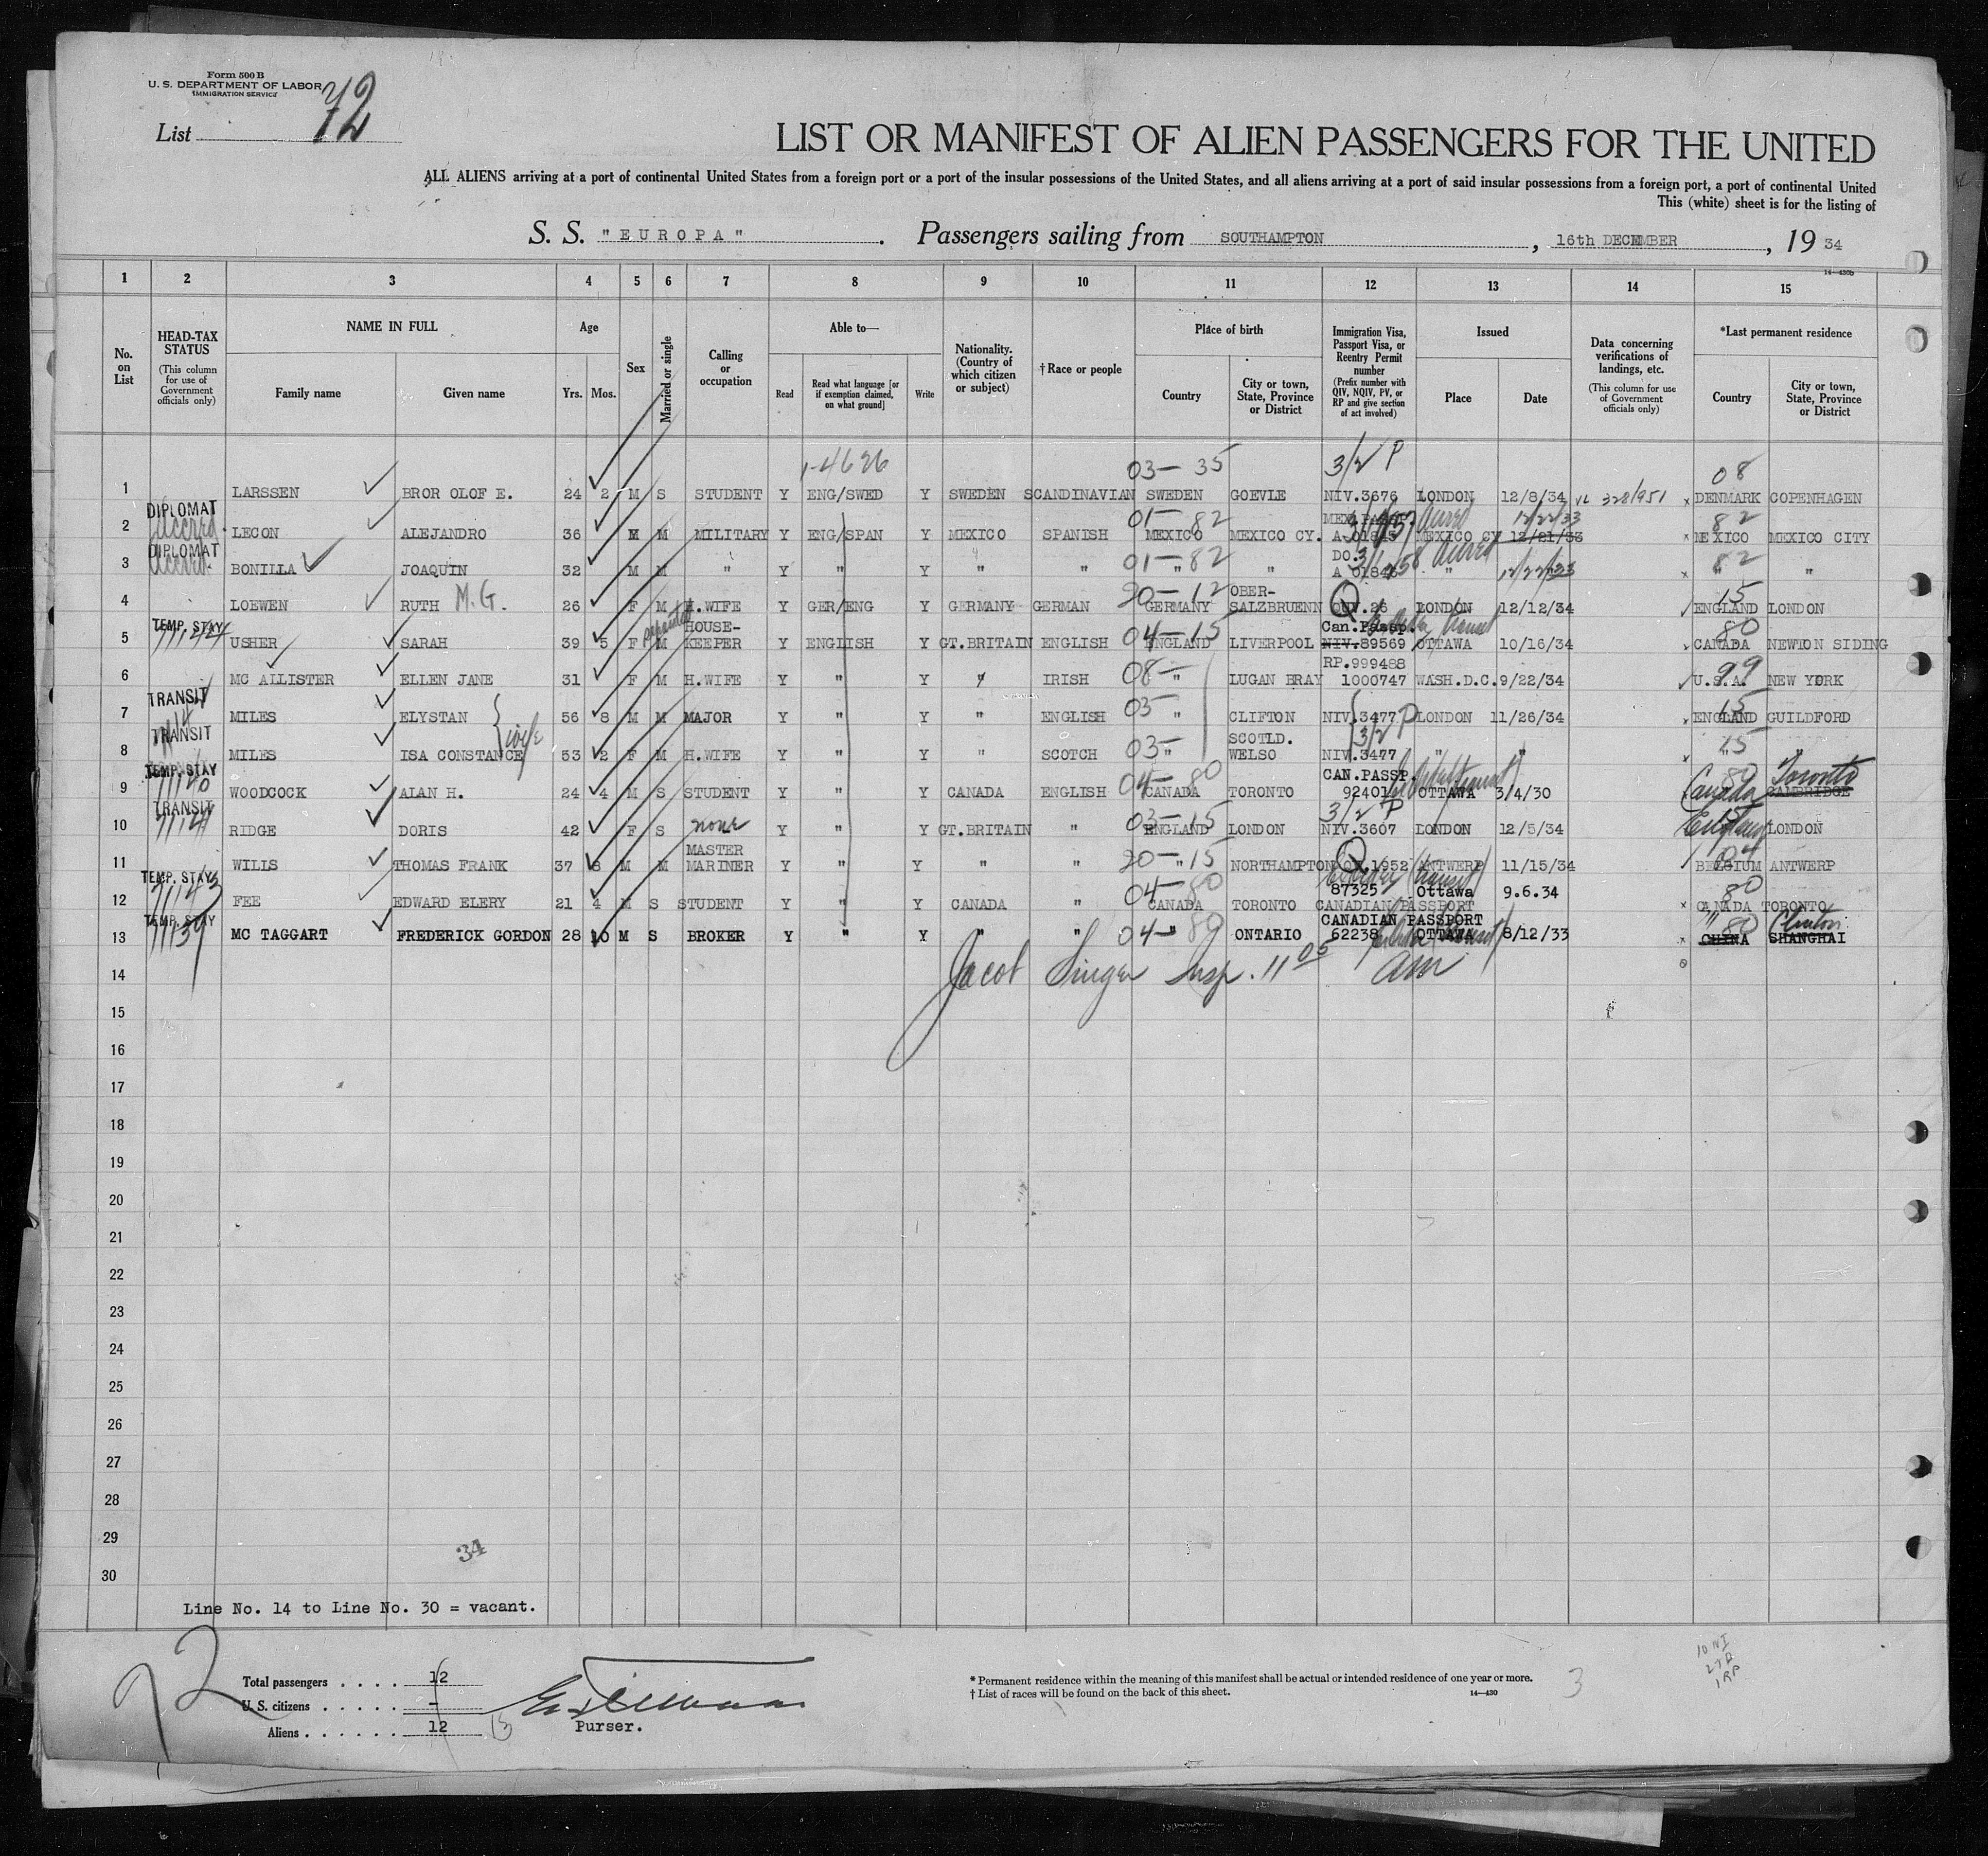 Form 500 B
U. S. DEPARTMENT OF LABOR
IMMIGRATION SERVICE
List 72
LIST OR MANIFEST OF ALIEN PASSENGERS FOR THE UNITED
ALL ALIENS arriving at a port of continental United States from a foreign port or a port of the insular possessions of the United States, and all aliens arriving at a port of said insular possessions from a foreign port, a port of continental United
This (white) sheet is for the listing of
S. S. "EUROPA" . Passengers sailing from SOUTHAMPTON , 16th DECEMBER , 19 34
14—430b
1 2 3 4 5 6 7 8 9 10 11 12 13 14 15
No. on List
HEAD-TAX STATUS (This column for use of Government officials only)
NAME IN FULL Family name Given name
Age Yrs. Mos.
Sex
Married or single
Calling or occupation
Able to— Read Read what language [or if exemption claimed, on what ground] Write
Nationality. (Country of which citizen or subject)
†Race or people
Place of birth Country City or town, State, Province or District
Immigration Visa, Passport Visa, or Reentry Permit number (Prefix number with QIV, NQIV, PV, or RP and give section of act involved)
Issued Place Date
Data concerning verifications of landings, etc. (This column for use of Government officials only)
*Last permanent residence Country City or town, State, Province or District
1-4626 03—35 3/2 P 08
1 LARSSEN BROR OLOF E. 24 2 M S STUDENT Y ENG/SWED Y SWEDEN SCANDINAVIAN SWEDEN GOEVLE NIV.3676 LONDON 12/8/34 328/951 x DENMARK COPENHAGEN
DIPLOMAT 01—82 12/22/33 82
2 LECON ALEJANDRO 36 M M MILITARY Y ENG/SPAN Y MEXICO SPANISH MEXICO MEXICO CY. A 01845 MEXICO CY 12/21/33 x MEXICO MEXICO CITY
DIPLOMAT 01—82 DO. 82
3 BONILLA JOAQUIN 32 M M " Y " Y " " " " A 01846 " 12/22/33 x " "
20—12 OBER- Q 15
4 LOEWEN RUTH M.G. 26 F M H.WIFE Y GER/ENG Y GERMANY GERMAN GERMANY SALZBRUENN QIV.26 LONDON 12/12/34 ENGLAND LONDON
TEMP. STAY separated HOUSE- 04—15 Can.Passp. 80
5 USHER SARAH 39 5 F M KEEPER Y ENGLISH Y GT.BRITAIN ENGLISH ENGLAND LIVERPOOL NIV.89569 OTTAWA 10/16/34 CANADA NEWTON SIDING
08— RP.999488 99
6 MC ALLISTER ELLEN JANE 31 F M H.WIFE Y " Y " IRISH " LUGAN BRAY 1000747 WASH.D.C. 9/22/34 U.S.A. NEW YORK
TRANSIT 03— 15
7 MILES ELYSTAN 56 8 M M MAJOR Y " Y " ENGLISH " CLIFTON NIV.3477 LONDON 11/26/34 ENGLAND GUILDFORD
TRANSIT wife 03— SCOTLD. 3/2 P 15
8 MILES ISA CONSTANCE 53 2 F M H.WIFE Y " Y " SCOTCH " WELSO NIV.3477 " " x "
TEMP. STAY 04—80 CAN.PASSP. 80 Toronto
9 WOODCOCK ALAN H. 24 4 M S STUDENT Y " Y CANADA ENGLISH CANADA TORONTO 92401 OTTAWA 3/4/30 Canada CAMBRIDGE
TRANSIT 03—15 3/2 P
10 RIDGE DORIS 42 F S none Y " Y GT.BRITAIN " ENGLAND LONDON NIV.3607 LONDON 12/5/34 England LONDON
MASTER 20—15 Q 04
11 WILLS THOMAS FRANK 37 8 M M MARINER Y " Y " " " NORTHAMPTON QIV.1952 ANTWERP 11/15/34 BELGIUM ANTWERP
TEMP. STAY 04—80 87325 Ottawa 9.6.34 80
12 FEE EDWARD ELERY 21 4 M S STUDENT Y " Y CANADA " CANADA TORONTO CANADIAN PASSPORT x CANADA TORONTO
TEMP. STAY CANADIAN PASSPORT " 80 Clinton
13 MC TAGGART FREDERICK GORDON 28 10 M S BROKER Y " Y " " 04—80 " ONTARIO 62238 OTTAWA 8/12/33 x CHINA SHANGHAI
14 Jacob Singer Insp. 11 05 am
15
16
17
18
19
20
21
22
23
24
25
26
27
28
29
34
30
Line No. 14 to Line No. 30 = vacant.
72
Total passengers . . . . 12
U. S. citizens . . . . . –
Aliens . . . . . . 12 13
Purser.
* Permanent residence within the meaning of this manifest shall be actual or intended residence of one year or more.
† List of races will be found on the back of this sheet. 14—430
3
10 NI
2 TR
1 RP